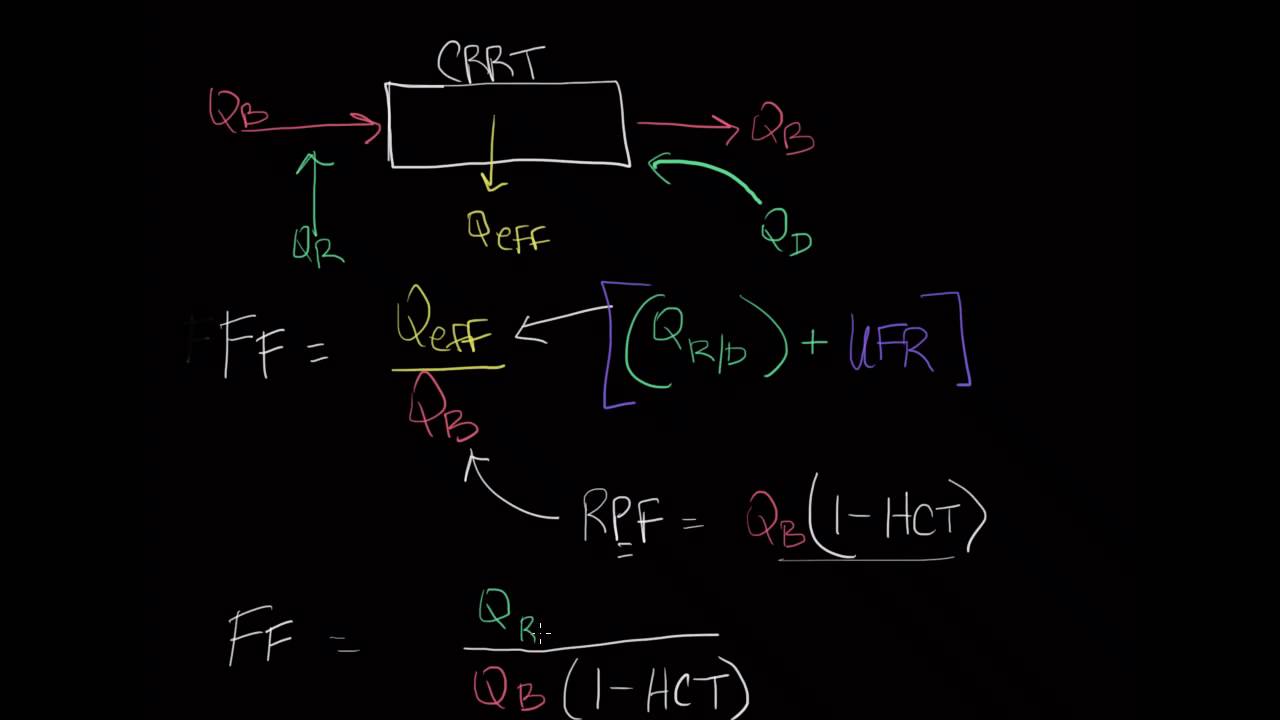 CRRT
QB QB
QR Qeff QD
FF = Qeff / QB [(QR/D) + UFR]
RPF = QB(1-HCT)
FF = QR / QB(1-HCT)